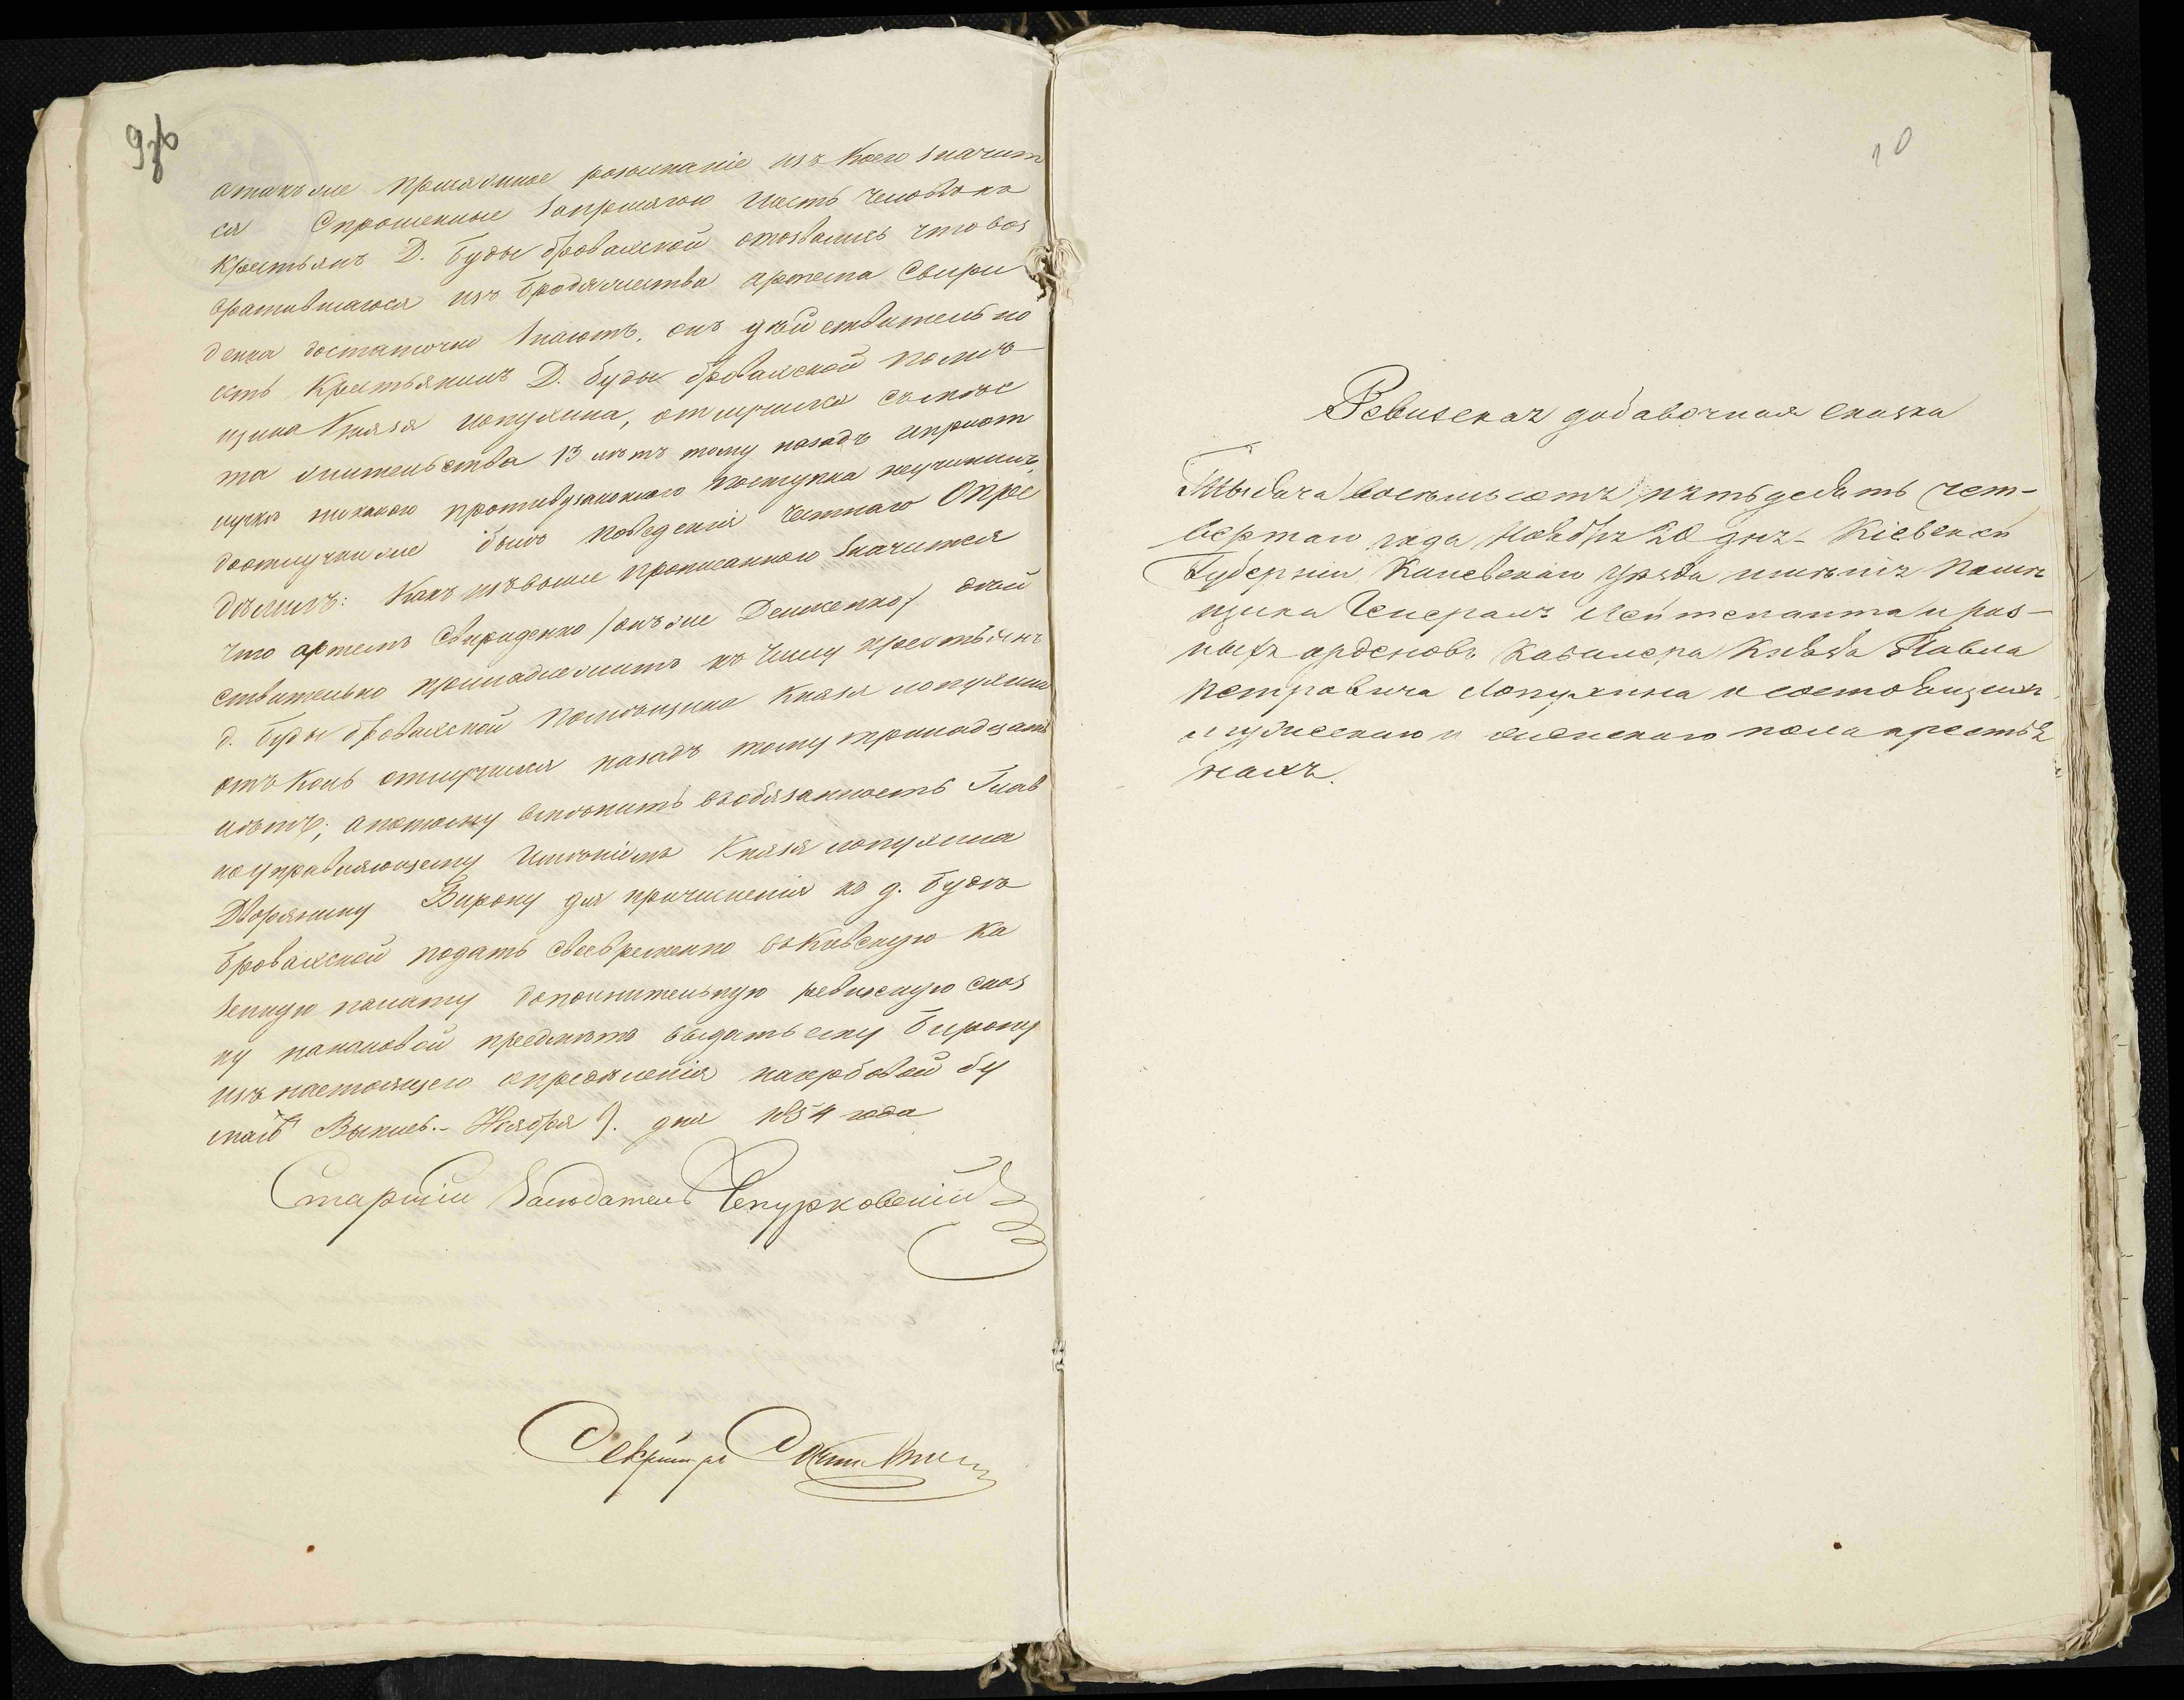 9 об
атакъ же присяжное розысканіе изъ коего значит
ся Спрошенные запрысягою шесть человѣка
крестьянъ Д. Буды броварской отозвались что воз
вратившагося изъ бродяжества артема Свири
денка достаточно знаютъ, онъ дѣйствительно
есть Крестьянинъ Д. Буды броварской помѣ
щика Князя Лопухина, отлучился съ мѣс
та жительства 13 лѣтъ тому назадъ ипри от
лучкѣ никакого противузаконнаго поступка неучинилъ,
доотлучки же былъ поведенія честнаго Опре
дѣлилъ: Какъ изъ выше прописанного значится
что артемъ Свириденко /онъ же Демченко/ дѣй
ствительно принадлежитъ къ числу крестьянъ
д. Буды броварской помѣщика Князя лопухина
отъ коль отлучился назадъ тому тринадцать
лѣтъ; апотому вмѣнить въ обязанность Глав
ноуправляющему Имѣніемъ Князя лопухина
Дворянину Бирону для причисленія къ д. Будѣ
броварской подать своевременно въ Кіевскую Ка
зенную палату дополнительную ревизскую сказ
ку наковой предметъ выдать ему Бирону
изъ настоящего опредѣленія нагербовой бу
магѣ Выпись.- Ноября 9. дня 1854 года
Старшій Засѣдатель Чепурковскій
Секретарь
10
Ревизская добавочная сказка
Тысяча восемьсотъ пятьдесятъ чет-
вертаго года Ноября 20 дня- Кіевской
Губерніи Каневскаго уѣзда имѣнія помѣ
щика Генералъ Лейтенанта и раз-
ныхъ орденовъ Кавалера Князя Павла
Петровича Лопухина о состоящихъ
мужескаго и женскаго пола крестья
нахъ.